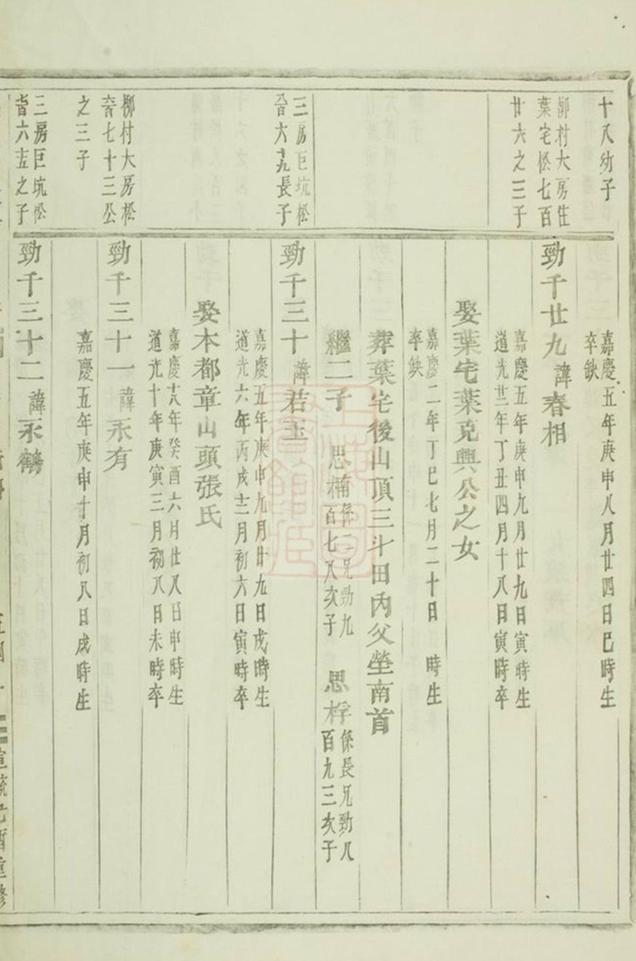 十八幼子
嘉慶五年庚申八月廿四日巳時生
卒缺
柳村大房住
葉宅松七百
廿六之三子
勁千廿九諱春相
嘉慶五年庚申九月廿九日寅時生
道光廿年丁丑四月十八日寅時卒
娶葉宅葉克興公之女
嘉慶二年丁巳七月二十日 時生
卒缺
葬葉宅後山頂三斗田內父塋南首
繼二子 思楠係二兄勁九
百七八次子 思桴係長兄勁八
百九三次子
三房巨坑松
八九長子
勁千三十諱若玉
嘉慶五年庚申九月廿九日戌時生
道光六年丙戌十二月初六日寅時卒
娶本都章山頭張氏
嘉慶十八年癸酉六月廿八日申時生
道光十年庚寅三月初八日未時卒
柳村大房松
七十三公
之三子
勁千三十一諱永有
嘉慶五年庚申十月初八日戌時生
三房巨坑松
六五之子
勁千三十二諱永鶴